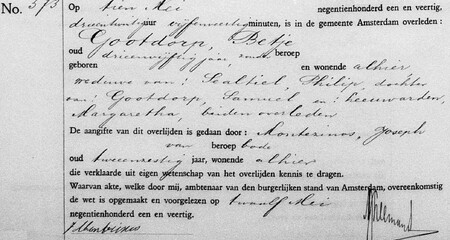 No. 573 Op tien Mei negentienhonderd een en veertig,
drieentwintig uur vijfenveertig minuten, is in de gemeente Amsterdam overleden :
Gootdorp, Betje
oud drieenvijftig jaar, van beroep
geboren en wonende alhier
weduwe van : Sealtiel, Philip, dochter
van : Gootdorp, Samuel en : Leeuwarden,
Margaretha, beiden overleden
De aangifte van dit overlijden is gedaan door : Montezinos, Joseph
van beroep bode
oud tweeenzestig jaar, wonende alhier
die verklaarde uit eigen wetenschap van het overlijden kennis te dragen.
Waarvan akte, welke door mij, ambtenaar van den burgerlijken stand van Amsterdam, overeenkomstig
de wet is opgemaakt en voorgelezen op twaalf Mei
negentienhonderd een en veertig.